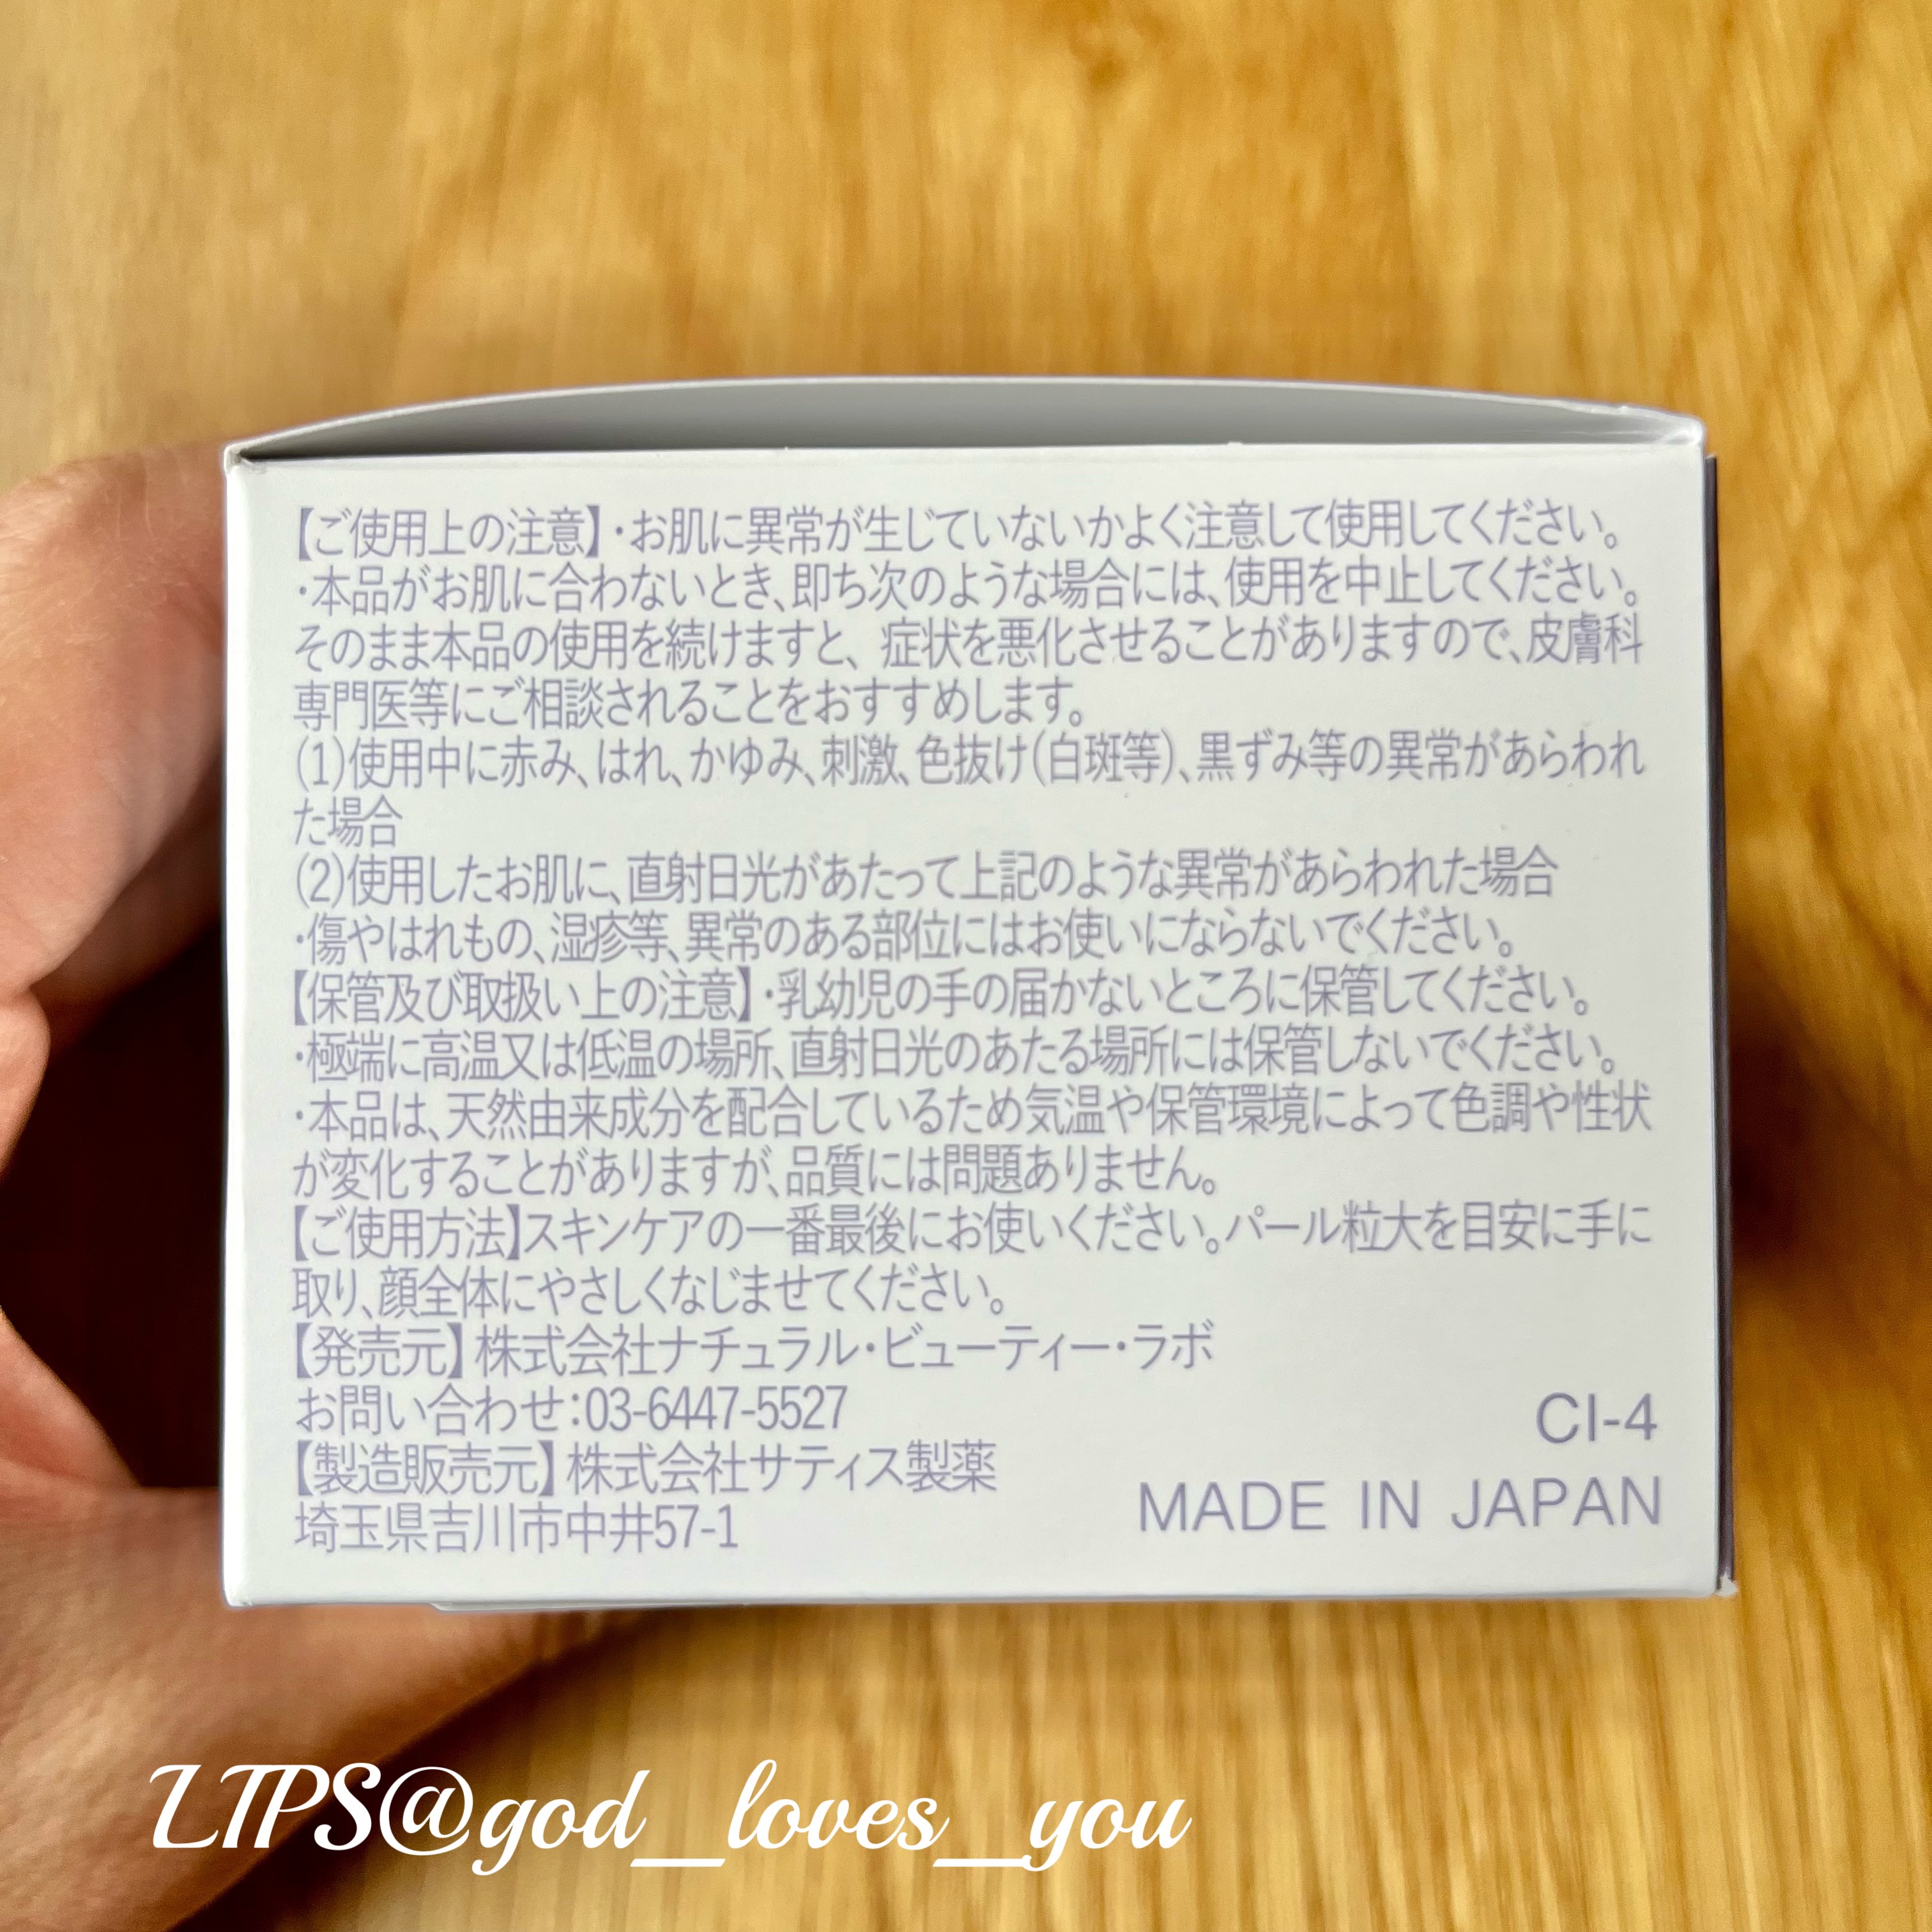 【ご使用上の注意】・お肌に異常が生じていないかよく注意して使用してください。
・本品がお肌に合わないとき、即ち次のような場合には、使用を中止してください。
そのまま本品の使用を続けますと、症状を悪化させることがありますので、皮膚科
専門医等にご相談されることをおすすめします。
(1)使用中に赤み、はれ、かゆみ、刺激、色抜け(白斑等)、黒ずみ等の異常があらわれ
た場合
(2)使用したお肌に、直射日光があたって上記のような異常があらわれた場合
・傷やはれもの、湿疹等、異常のある部位にはお使いにならないでください。
【保管及び取扱い上の注意】・乳幼児の手の届かないところに保管してください。
・極端に高温又は低温の場所、直射日光のあたる場所には保管しないでください。
・本品は、天然由来成分を配合しているため気温や保管環境によって色調や性状
が変化することがありますが、品質には問題ありません。
【ご使用方法】スキンケアの一番最後にお使いください。パール粒大を目安に手に
取り、顔全体にやさしくなじませてください。
【発売元】株式会社ナチュラル・ビューティー・ラボ
お問い合わせ：03-6447-5527
【製造販売元】株式会社サティス製薬
埼玉県吉川市中井57-1
CI-4
MADE IN JAPAN
LIPS@god_loves_you